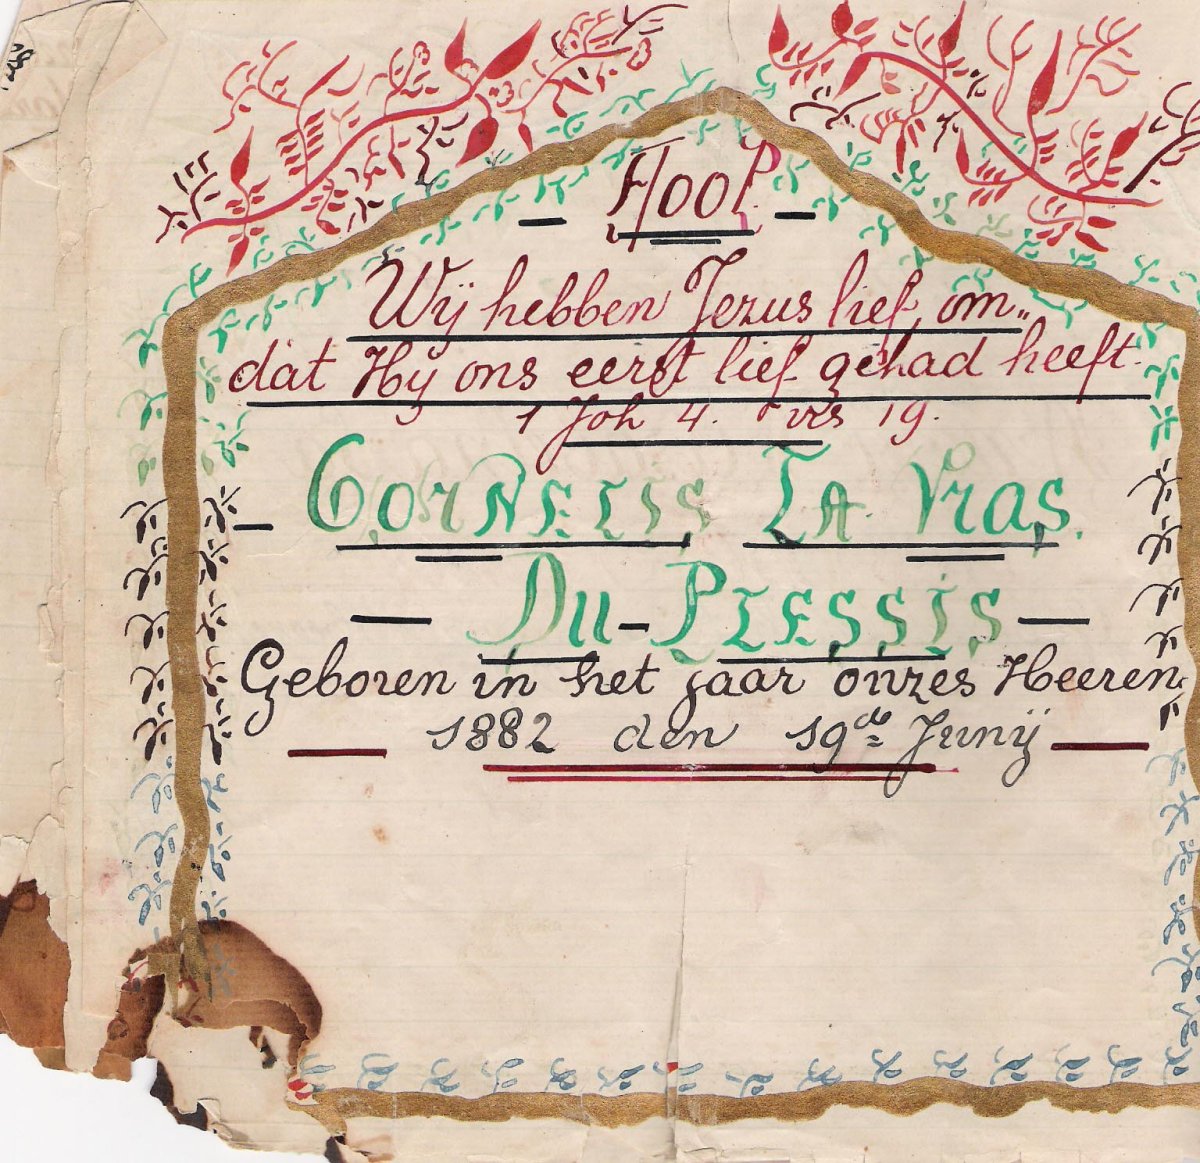 - Hoop -
Wij hebben Jezus lief om„
dat Hij ons eerst lief gehad heeft.
1 Joh 4. vrs 19.
- Cornelis La Vras.
- Du-Plessis -
Geboren in het jaar onzes Heeren
- 1882 den 19de Junij -